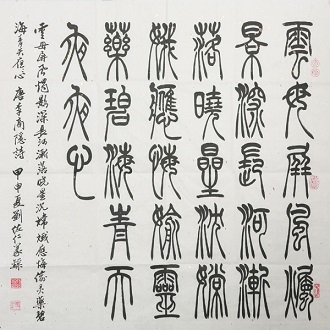 雲母屏風燭
景深長河漸
落曉曐沈嫦
娥應悔媮靈
藥碧海青天
夜夜心
雲母屏風燭影深長河漸落曉星沈嫦娥應悔偷灵藥碧
海青天夜夜心 唐李商隱詩 甲申夏劉佐仁篆